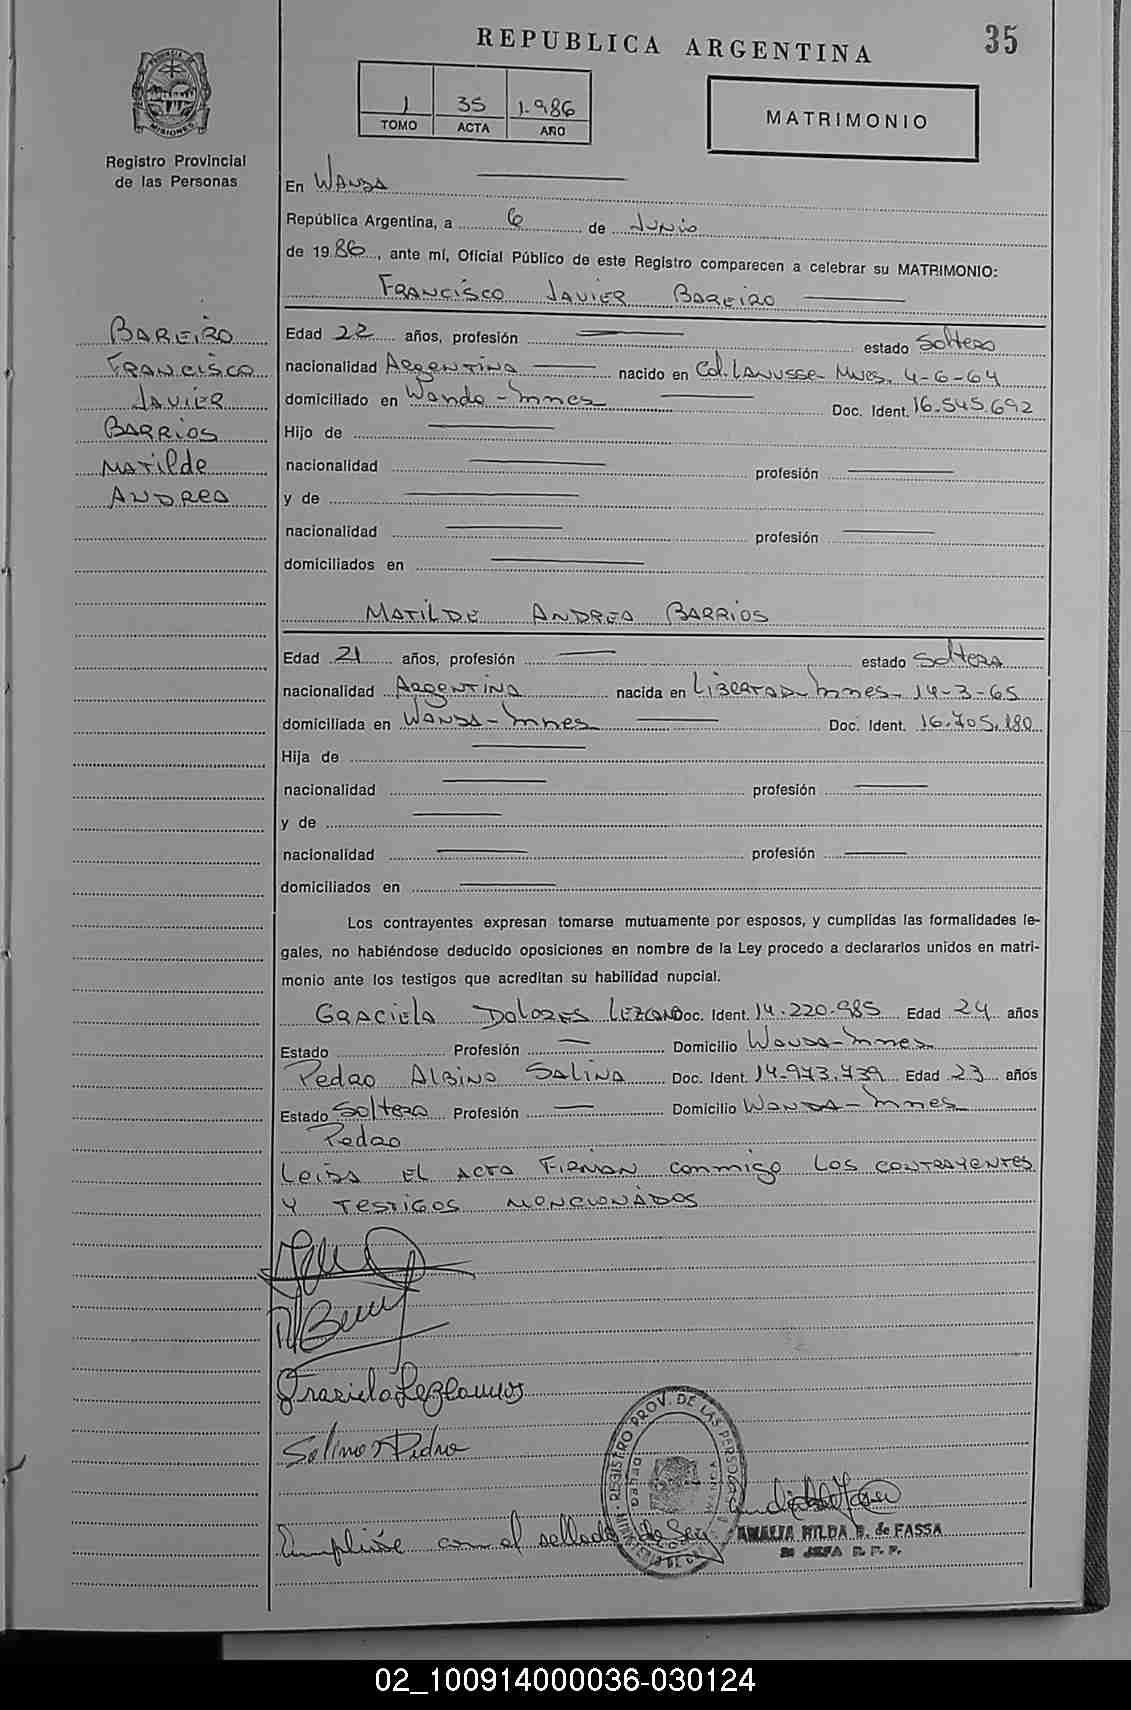 REPUBLICA ARGENTINA
35
1 35 1.986
TOMO ACTA AÑO
MATRIMONIO
MISIONES
Registro Provincial
de las Personas
En Wanda
República Argentina, a 6 de Junio
de 1986, ante mí, Oficial Público de este Registro comparecen a celebrar su MATRIMONIO:
Francisco Javier Bareiro
Bareiro
Francisco
Javier
Barrios
Matilde
Andrea
Edad 22 años, profesión estado Soltero
nacionalidad Argentina nacido en Col. Lanusse- Mnes. 4-6-64
domiciliado en Wanda-Mnes Doc. Ident. 16.545.692
Hijo de
nacionalidad profesión
y de
nacionalidad profesión
domiciliados en
Matilde Andrea Barrios
Edad 21 años, profesión estado Soltera
nacionalidad Argentina nacida en Libertad-Mnes- 14-3-65
domiciliada en Wanda-Mnes Doc. Ident. 16.705.180
Hija de
nacionalidad profesión
y de
nacionalidad profesión
domiciliados en
Los contrayentes expresan tomarse mutuamente por esposos, y cumplidas las formalidades le-
gales, no habiéndose deducido oposiciones en nombre de la Ley procedo a declararlos unidos en matri-
monio ante los testigos que acreditan su habilidad nupcial.
Graciela Dolores Lezcano Doc. Ident. 14.220.985 Edad 24 años
Estado Profesión Domicilio Wanda-Mnes
Pedro Albino Salina Doc. Ident. 14.973.739 Edad 23 años
Estado Soltero Profesión Domicilio Wanda-Mnes
Pedro
Leida el acta firman conmigo los contrayentes
y testigos mencionados
Graciela
Salina Pedro
REGISTRO PROV. DE LAS PERSONAS
AMALIA HILDA B. de FASSA
JEFA R. P. P.
Cumplióse con el sellado de Ley
02_100914000036-030124